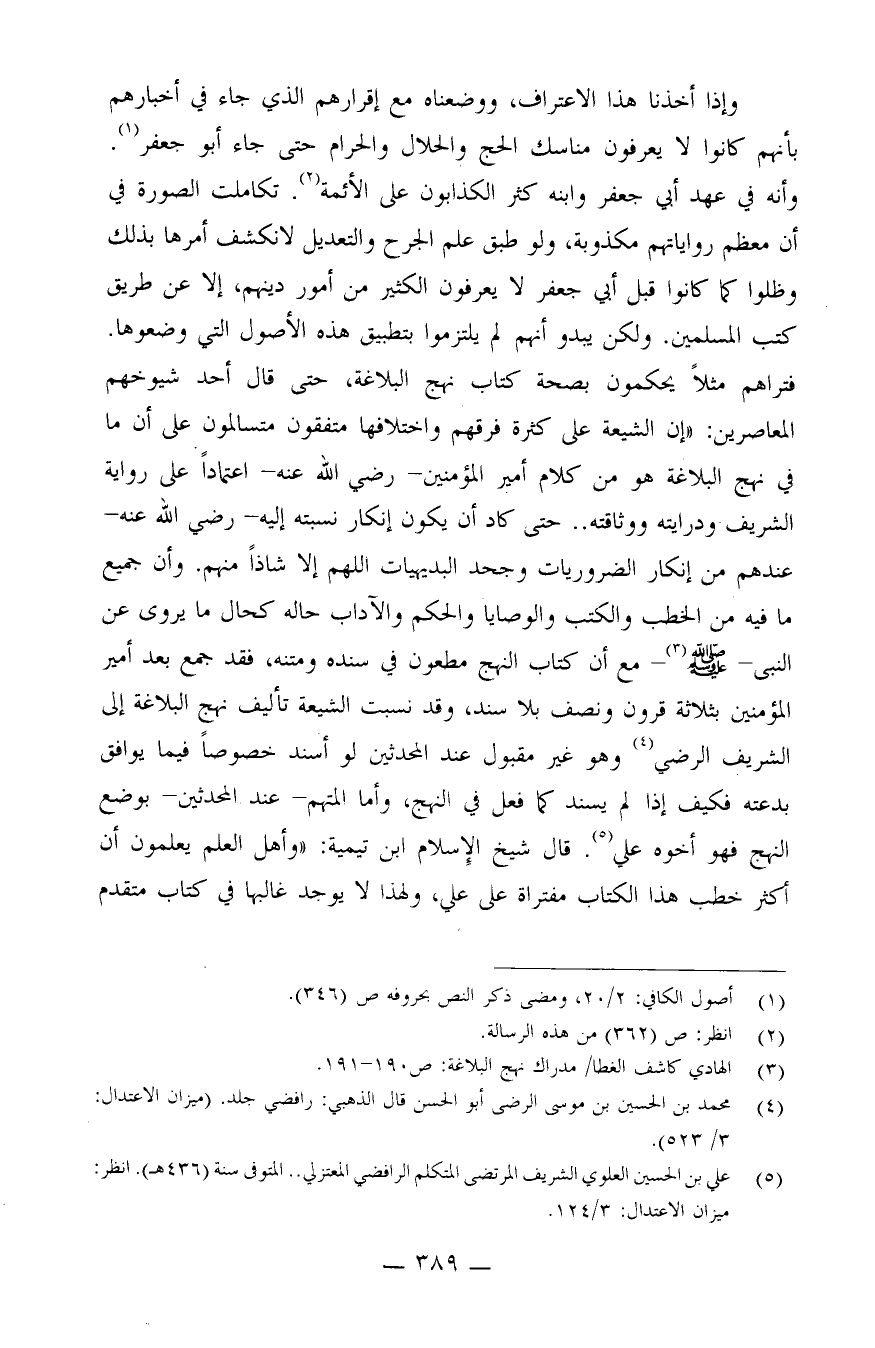 وإذا أخذنا هذا الاعتراف، ووضعناه مع إقرارهم الذي جاء في أخبارهم
بأنهم كانوا لا يعرفون مناسك الحج والحلال والحرام حتى جاء أبو جعفر(١).
وأنه في عهد أبي جعفر وابنه كثر الكذابون على الأئمة(٢). تكاملت الصورة في
أن معظم رواياتهم مكذوبة، ولو طبق علم الجرح والتعديل لانكشف أمرها بذلك
وظلوا كما كانوا قبل أبي جعفر لا يعرفون الكثير من أمور دينهم، إلا عن طريق
كتب المسلمين. ولكن يبدو أنهم لم يلتزموا بتطبيق هذه الأصول التي وضعوها.
فتراهم مثلاً يحكمون بصحة كتاب نهج البلاغة، حتى قال أحد شيوخهم
المعاصرين: «إن الشيعة على كثرة فرقهم واختلافها متفقون متسالمون على أن ما
في نهج البلاغة هو من كلام أمير المؤمنين– رضي الله عنه– اعتماداً على رواية
الشريف ودرايته ووثاقته.. حتى كاد أن يكون إنكار نسبته إليه– رضي الله عنه–
عندهم من إنكار الضروريات وجحد البديهيات اللهم إلا شاذاً منهم. وأن جميع
ما فيه من الخطب والكتب والوصايا والحكم والآداب حاله كحال ما يروى عن
النبي– ﷺ(٣)– مع أن كتاب النهج مطعون في سنده ومتنه، فقد جمع بعد أمير
المؤمنين بثلاثة قرون ونصف بلا سند، وقد نسبت الشيعة تأليف نهج البلاغة إلى
الشريف الرضي(٤) وهو غير مقبول عند المحدثين لو أسند خصوصاً فيما يوافق
بدعته فكيف إذا لم يسند كما فعل في النهج، وأما المتهم– عند المحدثين– بوضع
النهج فهو أخوه علي(٥). قال شيخ الإسلام ابن تيمية: «وأهل العلم يعلمون أن
أكثر خطب هذا الكتاب مفتراة على علي، ولهذا لا يوجد غالبها في كتاب متقدم
(١) أصول الكافي: ٢٠/٢، ومضى ذكر النص بحروفه ص (٣٤٦).
(٢) انظر: ص (٣٦٢) من هذه الرسالة.
(٣) الهادي كاشف الغطا/ مدراك نهج البلاغة: ص١٩٠–١٩١.
(٤) محمد بن الحسين بن موسى الرضى أبو الحسن قال الذهبي: رافضي جلد. (ميزان الاعتدال:
٣/ ٥٢٣).
(٥) علي بن الحسين العلوي الشريف المرتضى المتكلم الرافضي المعتزلي.. المتوفى سنة (٤٣٦هـ). انظر:
ميزان الاعتدال: ١٢٤/٣.
— ٣٨٩ —